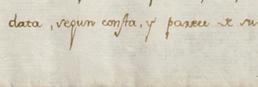 data, segun consta, y parece de su